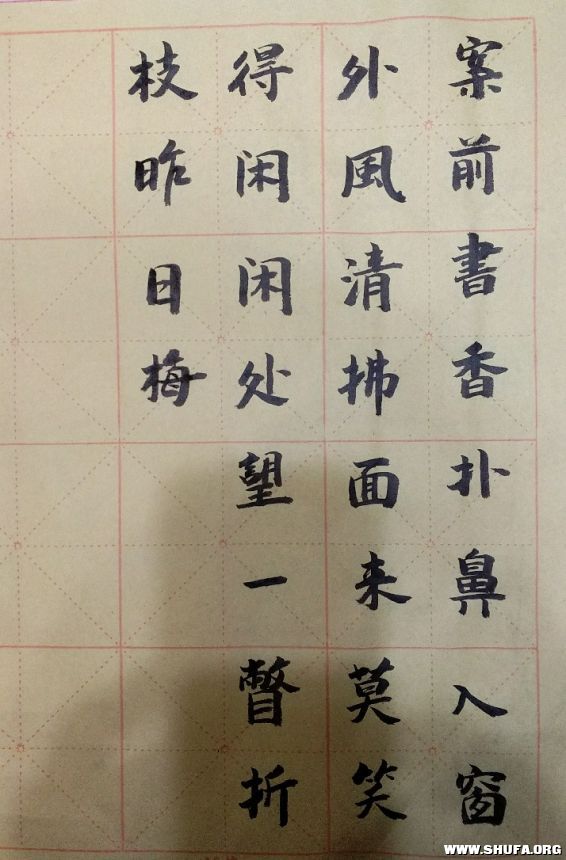 案前書香扑鼻入窗
外風清拂面来莫笑
得闲闲处望一瞥折
枝昨日梅
WWW.SHUFA.ORG